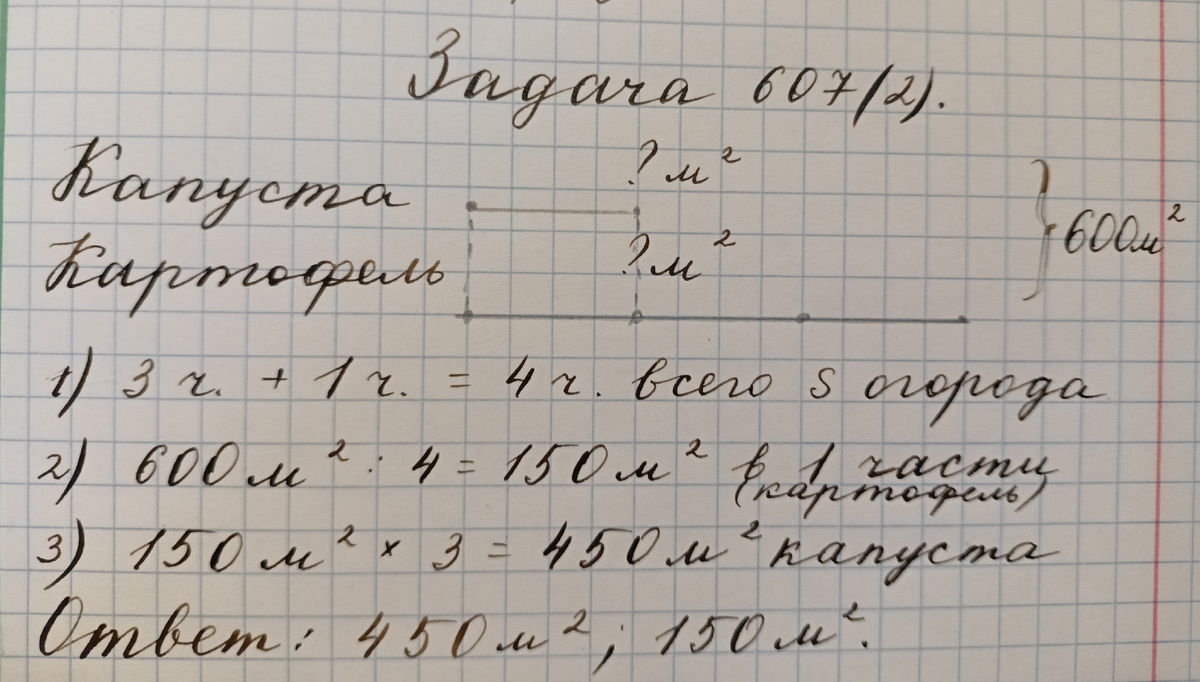 Задача 607(2).
Капуста ? м²
Картофель ? м² } 600м²
1) 3 ч. + 1 ч. = 4 ч. всего S огорода
2) 600 м² : 4 = 150 м² в 1 части
(картофель)
3) 150 м² × 3 = 450 м² капуста
Ответ: 450 м² ; 150 м².